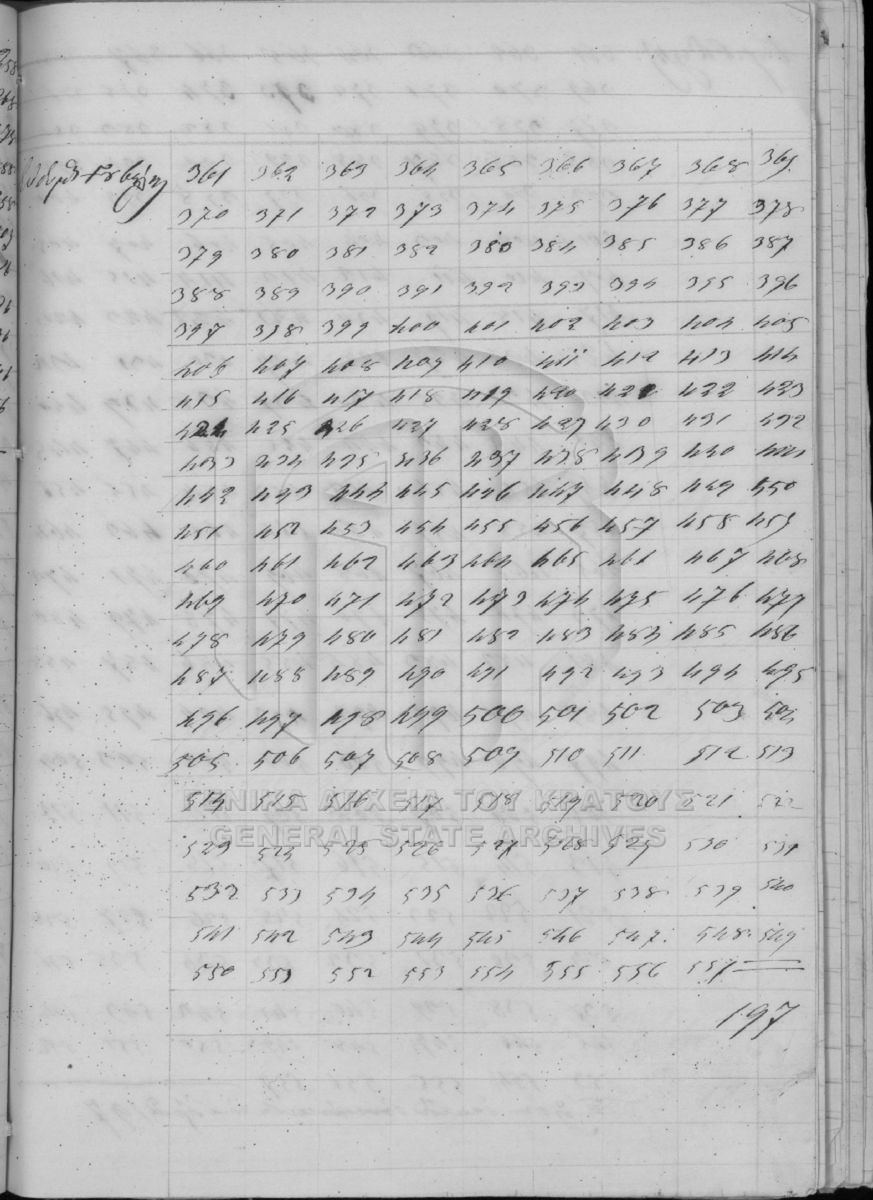 361 362 363 364 365 366 367 368 369
370 371 372 373 374 375 376 377 378
379 380 381 382 380 384 385 386 387
388 389 390 391 392 393 394 395 396
397 398 399 400 401 402 403 404 405
406 407 408 409 410 411 412 413 414
415 416 417 418 419 420 421 422 423
424 425 426 427 428 429 430 431 432
433 434 435 436 437 438 439 440 441
442 443 444 445 446 447 448 449 450
451 452 453 454 455 456 457 458 459
460 461 462 463 464 465 461 467 468
469 470 471 472 473 474 475 476 477
478 479 480 481 482 483 484 485 486
487 488 489 490 491 492 493 494 495
496 497 498 499 500 501 502 503 504
505 506 507 508 509 510 511 512 513
514 515 516 517 518 519 520 521 522
ΓΕΝΙΚΑ ΑΡΧΕΙΑ ΤΟΥ ΚΡΑΤΟΥΣ
GENERAL STATE ARCHIVES
523 524 525 526 527 528 529 530 531
532 533 534 535 536 537 538 539 540
541 542 543 544 545 546 547 548 549
550 551 552 553 554 555 556 557
197